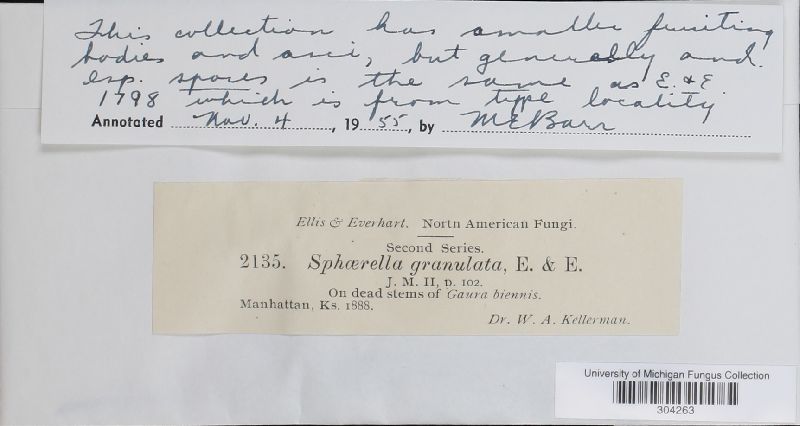 This collection has smaller fruiting
bodies and asci, but generally and
esp. spores is the same as E. & E.
1798 which is from type locality
Annotated Nov. 4, 1955, by MEBarr
Ellis & Everhart. North American Fungi.
Second Series.
2135. Sphærella granulata, E. & E.
J. M. II, p. 102.
On dead stems of Gaura biennis.
Manhattan, Ks. 1888.
Dr. W. A. Kellerman.
University of Michigan Fungus Collection
304263